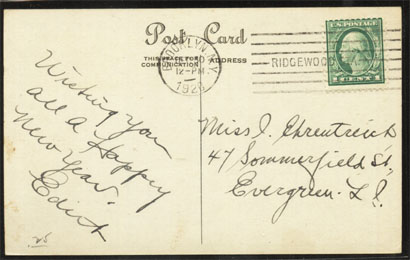 Post Card
THIS SPACE FOR
COMMUNICATION
ADDRESS
BROOKLYN N.Y.
12-PM
192
RIDGEWOOD
U.S. POSTAGE
1 CENT 1
Wishing you
all a Happy
New Year.
Miss J. Ehrentreich
47 Sommerfield St,
Evergreen. L I.
25